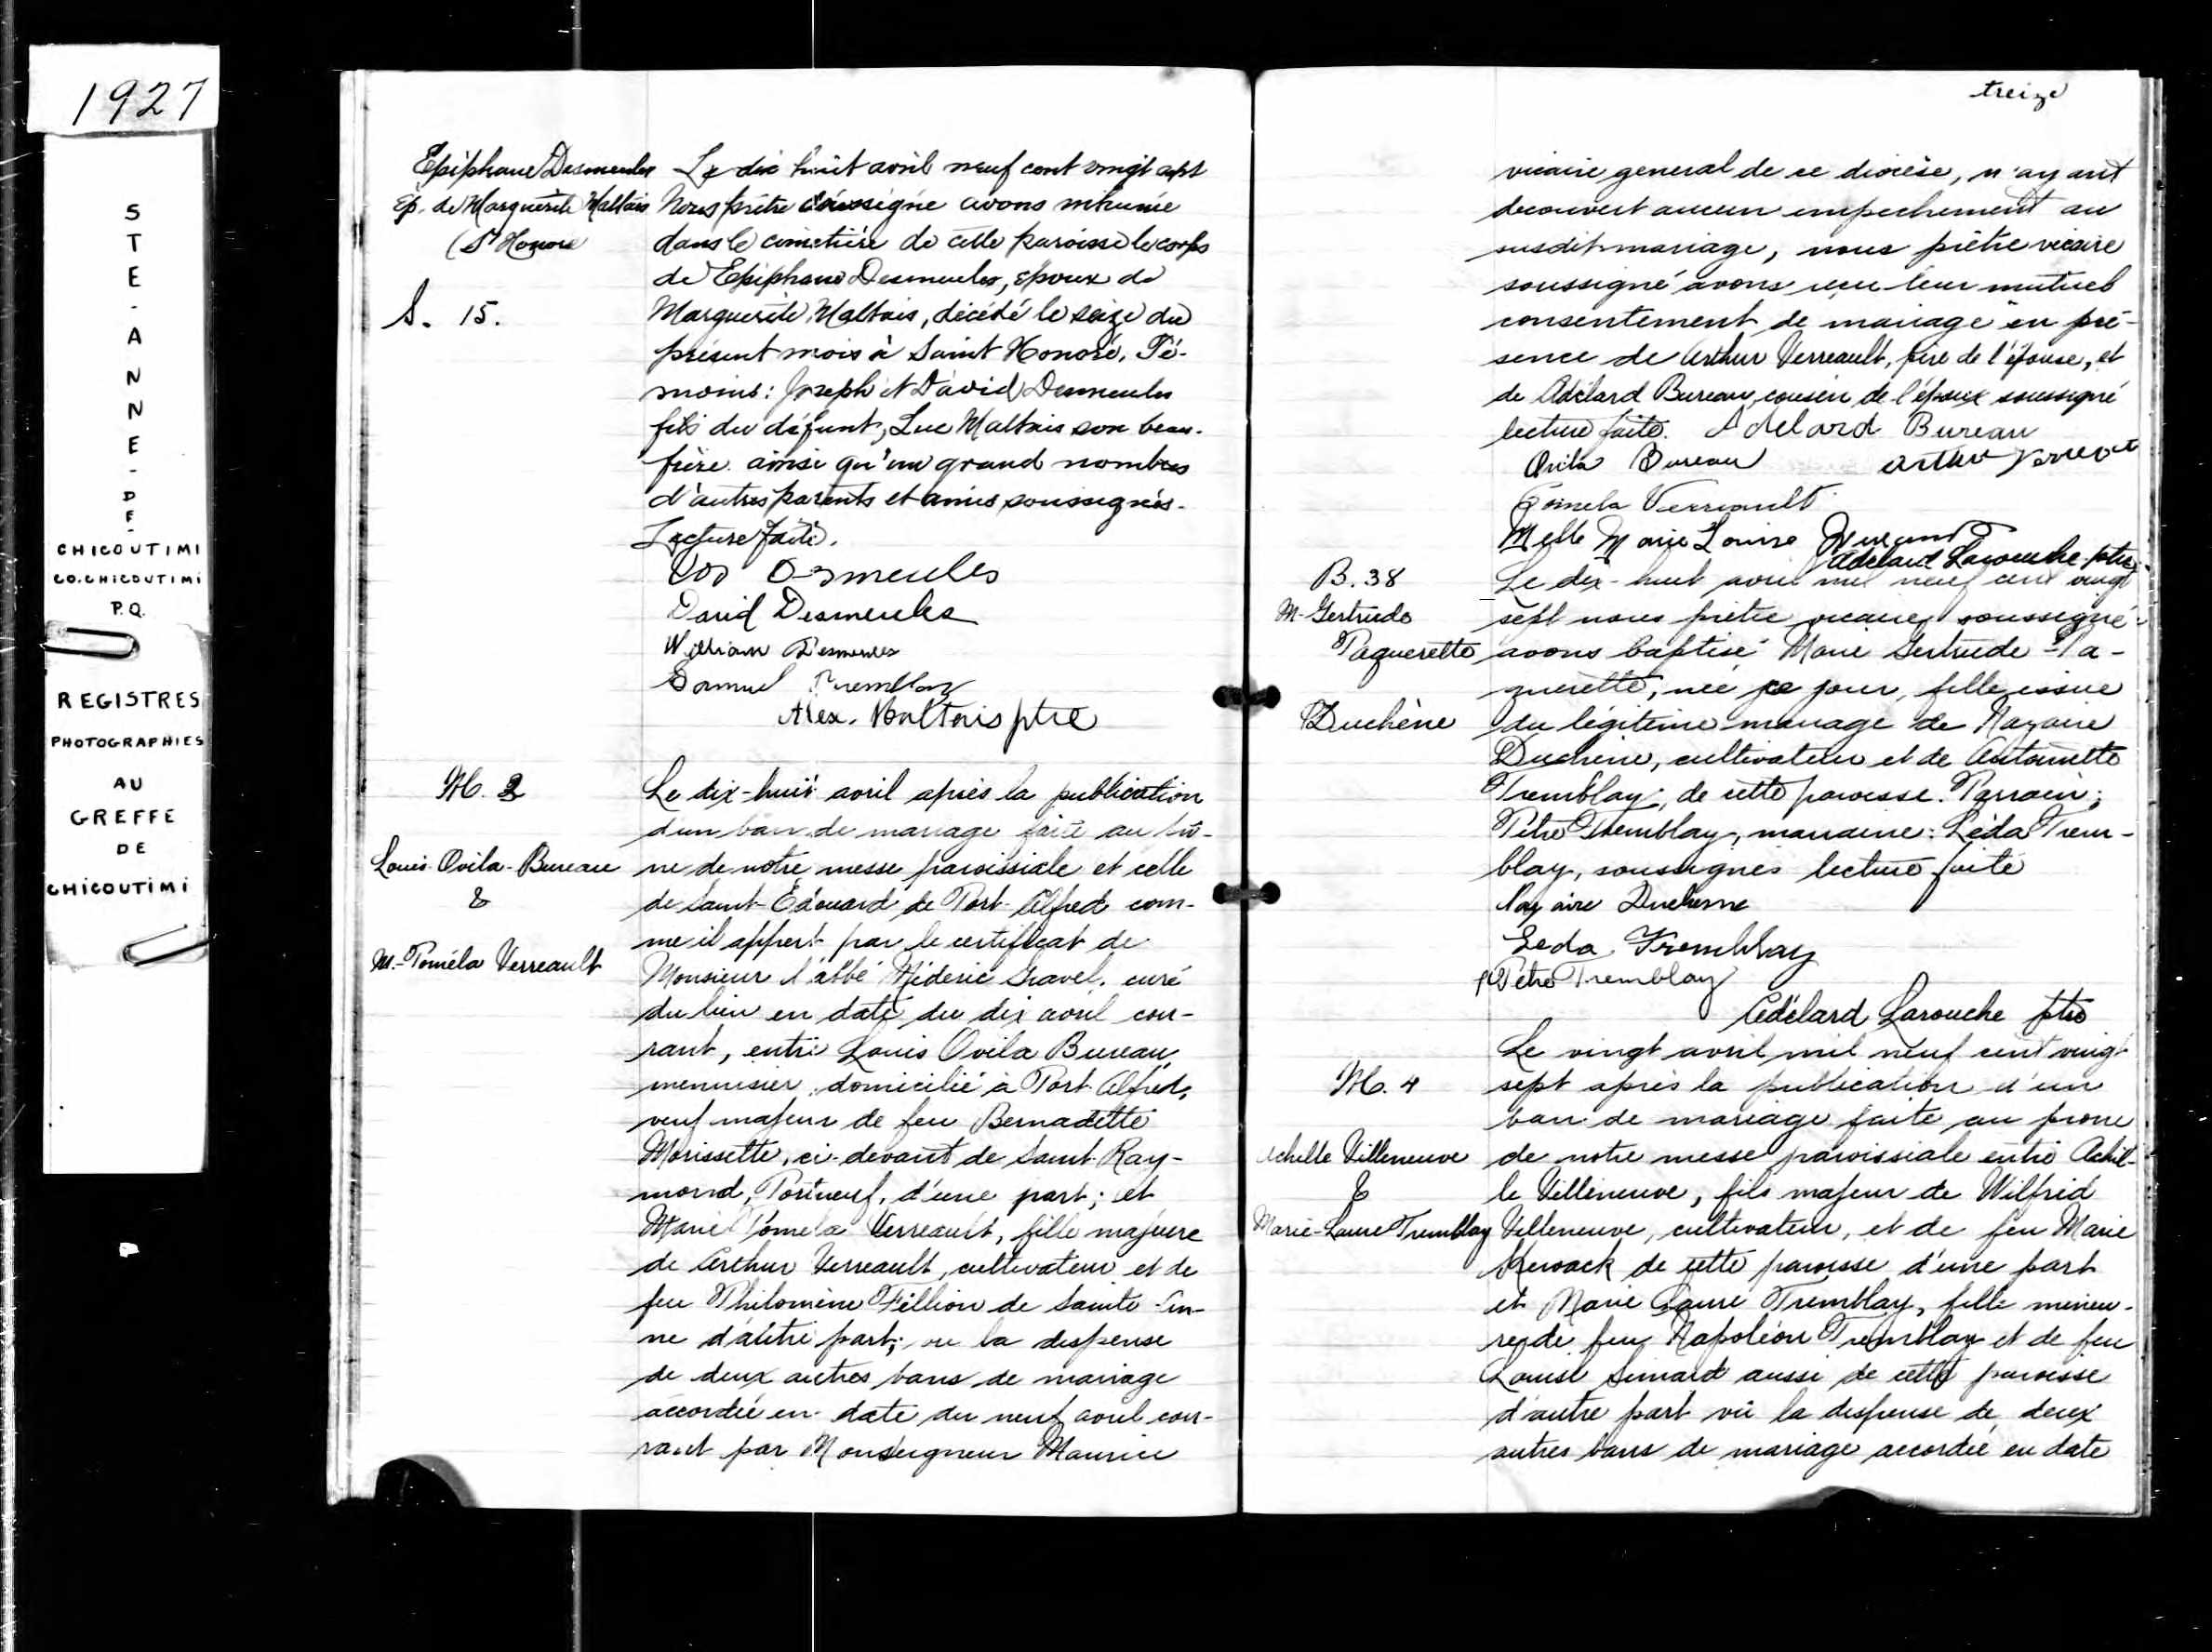 1927
STE-ANNE-DE-
CHICOUTIMI
CO. CHICOUTIMI
P.Q.
REGISTRES
PHOTOGRAPHIES
AU
GREFFE
DE
CHICOUTIMI
Epiphane Desmeules
Ép. de Marguerite Maltais
(St Honoré
S. 15.
Le dix huit avril neuf cent vingt sept
Nous prêtre soussigné avons inhumé
dans le cimetière de cette paroisse le corps
de Epiphane Desmeules, époux de
Marguerite Maltais, décédé le seize du
présent mois à Saint Honoré. Té-
moins: Joseph et David Desmeules
fils du défunt, Luc Maltais son beau-
frère ainsi qu'un grand nombres
d'autres parents et amis soussignés.
Lecture faite.
Jos Desmeules
David Desmeules
William Desmeules
Samuel Tremblay
Alex. Maltais ptre
M. 3
Louis Ovila Bureau
&
M.-Poméla Verreault
Le dix-huit avril après la publication
d'un ban de mariage faite au prô-
ne de notre messe paroissiale et celle
de Saint-Edouard de Port-Alfred com-
me il appert par le certificat de
Monsieur l'abbé Médéric Gravel, curé
du lieu en date du dix avril cou-
rant, entre Louis Ovila Bureau,
menuisier, domicilié à Port-Alfred,
veuf majeur de feu Bernadette
Morissette, ci-devant de Saint-Ray-
mond, Portneuf, d'une part; et
Marie Poméla Verreault, fille majeure
de Arthur Verreault, cultivateur et de
feu Philomène Fillion de Sainte-An-
ne d'autre part; vu la dispense
de deux autres bans de mariage
accordée en date du neuf avril cou-
rant par Monseigneur Maurice
treize
vicaire general de ce diocèse, n'ayant
decouvert aucun empechement au
susdit mariage, nous prêtre vicaire
soussigné avons reçu leur mutuel
consentement de mariage en pré-
sence de Arthur Verreault, père de l'épouse, et
de Adélard Bureau, cousin de l'époux soussigné
lecture faite. Adelard Bureau
Ovila Bureau Arthur Verreault
Pomela Verreault
Melle Marie Louise
Adelard Larouche ptre
B. 38
M-Gertrude
Paquerette
Duchène
Le dix-huit avril mil neuf cent vingt
sept nous prêtre vicaire soussigné
avons baptisé Marie Gertrude Pa-
querette, née ce jour, fille issue
du légitime mariage de Nazaire
Duchène, cultivateur et de Antoinette
Tremblay, de cette paroisse. Parrain;
Pitre Tremblay, marraine: Léda Trem-
blay, soussignés lecture faite
Nazaire Duchesne
Leda Tremblay
Pitre Tremblay
Adélard Larouche ptre
M. 4
Achille Villeneuve
&
Marie-Laure Tremblay
Le vingt avril mil neuf cent vingt
sept après la publication d'un
ban de mariage faite au prone
de notre messe paroissiale entre Achil-
le Villeneuve, fils majeur de Wilfrid
Villeneuve, cultivateur, et de feu Marie
de cette paroisse d'une part
et Marie Laure Tremblay, fille mineu-
re de feu Napoléon Tremblay et de feu
Louise Simard aussi de cette paroisse
d'autre part vû la dispense de deux
autres bans de mariage accordée en date